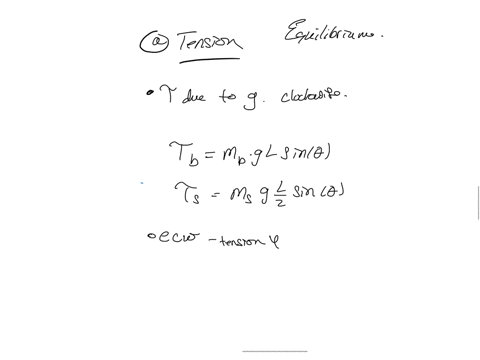 (a) Tension Equilibrium.
• τ due to g. clockwise.
τb = mb·gL sin(θ)
τs = ms g L/2 sin(θ)
• ccw - tension φ